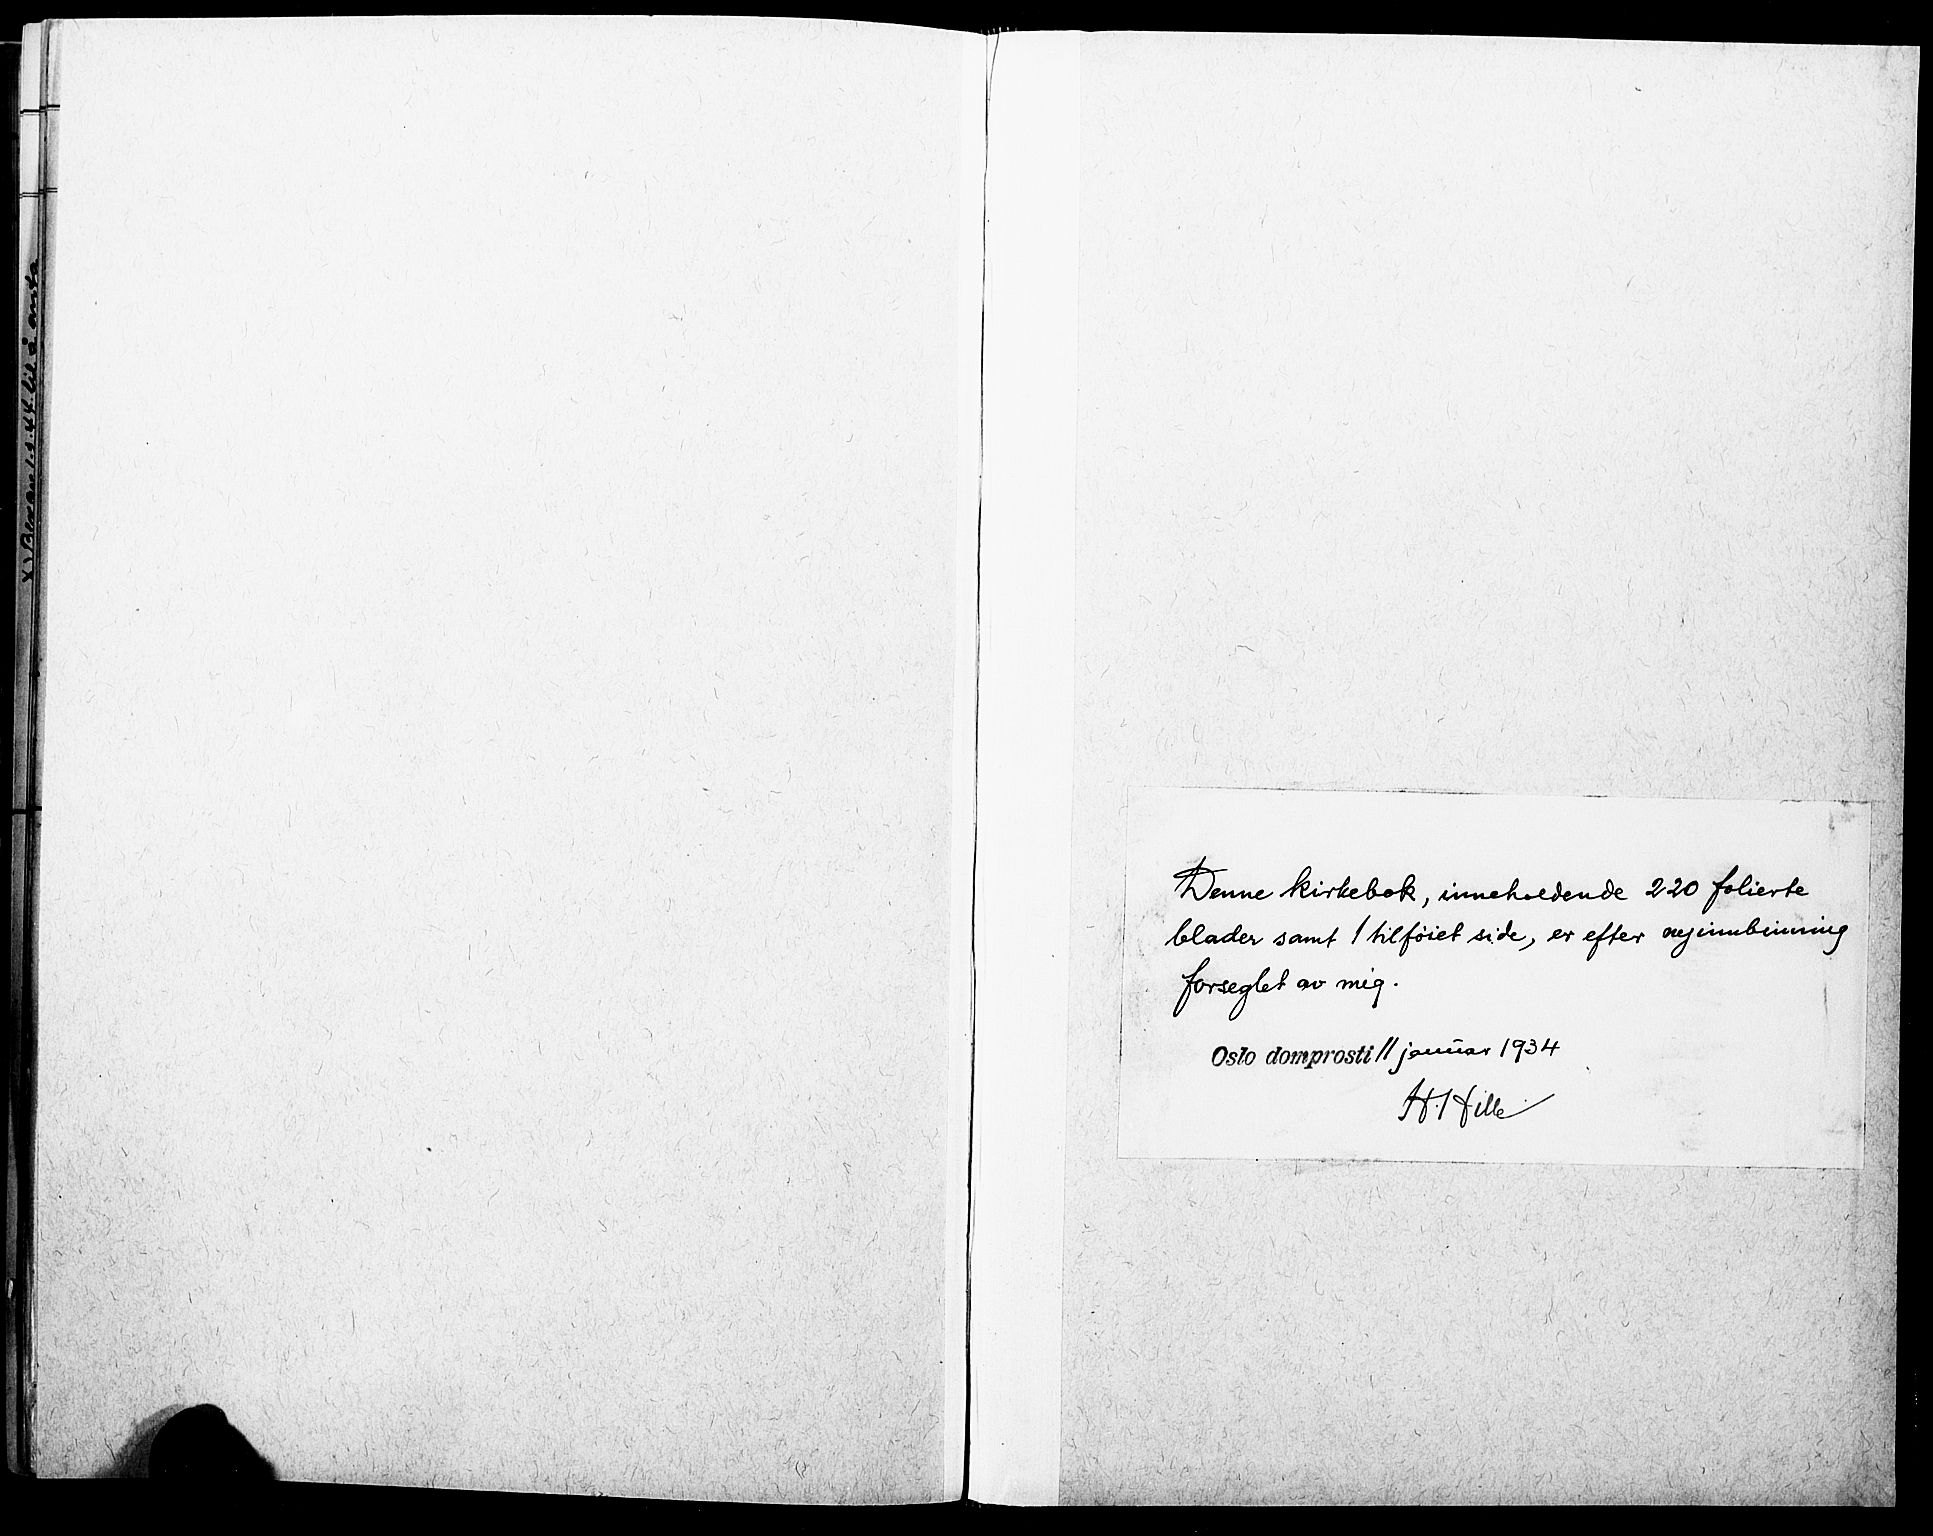 Denne kirkebok, inneholdende 220 folierte
blader samt 1 tilføiet side, er efter nyinnbinning
forseglet av mig.
Oslo domprosti 11 januar 1934
H. Hille